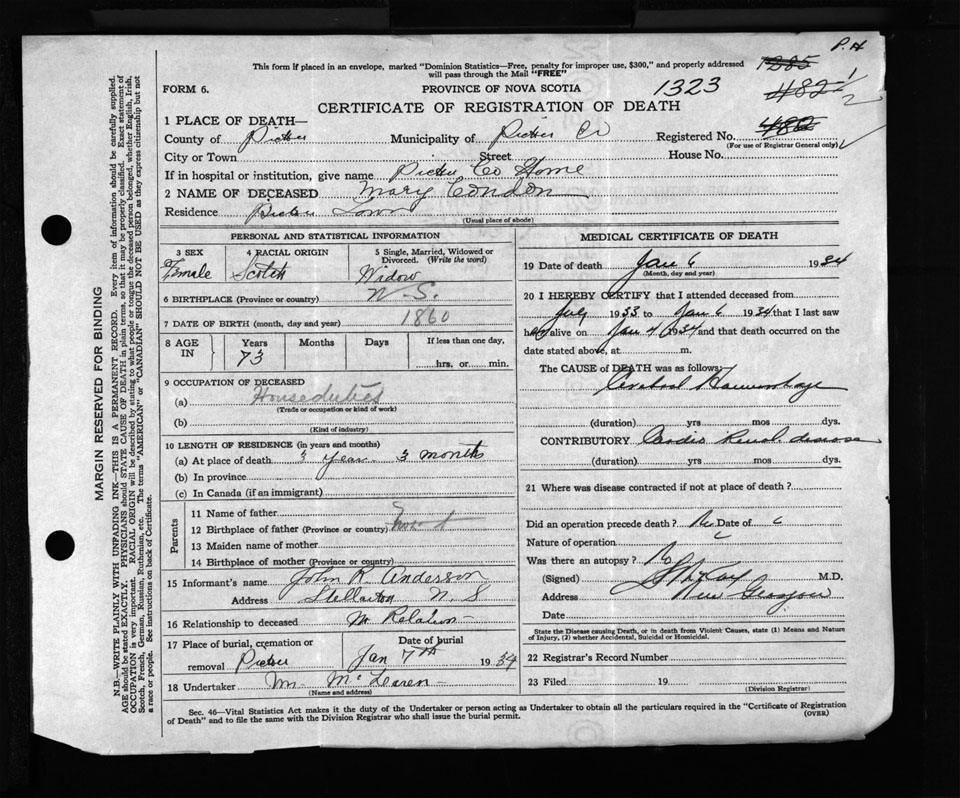 P.H
This form if placed in an envelope, marked "Dominion Statistics—Free, penalty for improper use, $300," and properly addressed
will pass through the Mail "FREE"
1285
482 1/2
FORM 6.
PROVINCE OF NOVA SCOTIA
1323
CERTIFICATE OF REGISTRATION OF DEATH
1 PLACE OF DEATH—
County of Pictou Municipality of Pictou Co Registered No. 482
(For use of Registrar General only)
City or Town Street House No.
If in hospital or institution, give name Pictou Co Home
2 NAME OF DECEASED Mary Condon
Residence Pictou Town
(Usual place of abode)
PERSONAL AND STATISTICAL INFORMATION
3 SEX 4 RACIAL ORIGIN 5 Single, Married, Widowed or Divorced. (Write the word)
Female Scotch Widow
6 BIRTHPLACE (Province or country) N.S.
7 DATE OF BIRTH (month, day and year) 1860
8 AGE IN Years Months Days If less than one day,
73 hrs. or min.
9 OCCUPATION OF DECEASED
(a) Houseduties
(Trade or occupation or kind of work)
(b)
(Kind of industry)
10 LENGTH OF RESIDENCE (in years and months)
(a) At place of death 3 Year 3 months
(b) In province
(c) In Canada (if an immigrant)
Parents
11 Name of father
12 Birthplace of father (Province or country)
13 Maiden name of mother
14 Birthplace of mother (Province or country)
15 Informant's name John R. Anderson
Address Stellarton N.S
16 Relationship to deceased No Relation
17 Place of burial, cremation or removal Pictou Date of burial Jan 7th 1934
18 Undertaker Wm McLaren
(Name and address)
MEDICAL CERTIFICATE OF DEATH
19 Date of death Jan 6 1934
(Month, day and year)
20 I HEREBY CERTIFY that I attended deceased from
July 1933 to Jan 6 1934 that I last saw
her alive on Jan 4 1934 and that death occurred on the
date stated above, at m.
The CAUSE of DEATH was as follows:
Cerebral Haemorrhage
(duration) yrs mos dys.
CONTRIBUTORY Cardio Renal disease
(duration) yrs mos dys.
21 Where was disease contracted if not at place of death?
Did an operation precede death? No Date of
Nature of operation
Was there an autopsy? No
(Signed) M.D.
Address New Glasgow
Date
State the Disease causing Death, or in death from Violent Causes, state (1) Means and Nature
of Injury, (2) whether Accidental, Suicidal or Homicidal.
22 Registrar's Record Number
23 Filed 19
(Division Registrar)
Sec. 46—Vital Statistics Act makes it the duty of the Undertaker or person acting as Undertaker to obtain all the particulars required in the "Certificate of Registration
of Death" and to file the same with the Division Registrar who shall issue the burial permit. (OVER)
MARGIN RESERVED FOR BINDING
N.B.—WRITE PLAINLY WITH UNFADING INK—THIS IS A PERMANENT RECORD. Every item of information should be carefully supplied.
AGE should be stated EXACTLY. PHYSICIANS should STATE CAUSE OF DEATH in plain terms, so that it may be properly classified. Exact statement of
OCCUPATION is very important. RACIAL ORIGIN will be described by stating to what people or tongue the deceased person belonged, whether English, Irish,
Scotch, French, German, Russian, Ruthenian, etc. The terms "AMERICAN" or "CANADIAN" SHOULD NOT BE USED as they express citizenship but not
a race or people. See instructions on back of Certificate.